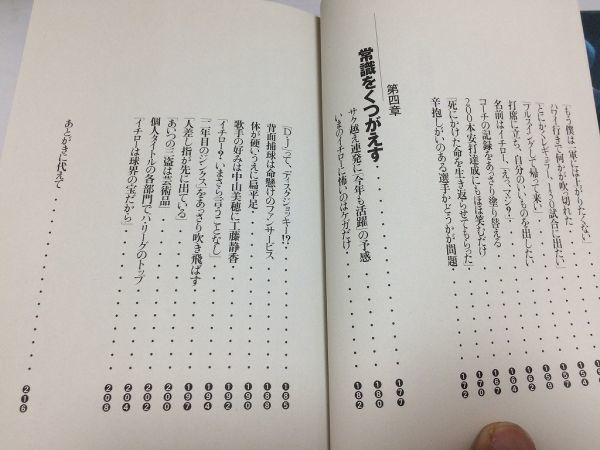 「もう僕は一軍には上がりたくない」
ハワイ行きで何かが吹っ切れた 154
「とにかくレギュラーで130試合に出たい」 157
「フルスイングして帰って来い」 159
打席に立ち、自分のいいものを出したい 162
名前はイチロー、「えっ、マジ?」 164
コーチの記録をあっさり塗り替える 167
200本安打達成にもほほ笑むだけ 170
「死にかけた命を生き返らせてもらった」 172
辛抱しがいのある選手かどうかが問題
第四章
常識をくつがえす 177
サク越え連発に「今年も活躍」の予感 180
いまのイチローに怖いのはケガだけ 182
「DJ」って、「ディスクジョッキー」!? 185
背面捕球は命懸けのファンサービス 188
体が硬いうえに扁平足 190
歌手の好みは中山美穂に工藤静香 192
「イチロー?いまさら言うことなし」 194
「二年目のジンクス」をあっさり吹き飛ばす 197
「人差し指が先に出ている」 200
「あいつの三盗は芸術品」 202
個人タイトルの各部門でパ・リーグのトップ 204
「イチローは球界の宝だから」 208
あとがきに代えて 216